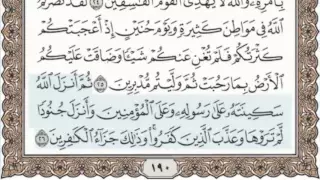 بِأَمْرِهِۦ وَٱللَّهُ لَا يَهْدِى ٱلْقَوْمَ ٱلْفَٰسِقِينَ ٢٤ لَقَدْ نَصَرَكُمُ
ٱللَّهُ فِى مَوَاطِنَ كَثِيرَةٍ وَيَوْمَ حُنَيْنٍ إِذْ أَعْجَبَتْكُمْ
كَثْرَتُكُمْ فَلَمْ تُغْنِ عَنكُمْ شَيْـًٔا وَضَاقَتْ عَلَيْكُمُ
ٱلْأَرْضُ بِمَا رَحُبَتْ ثُمَّ وَلَّيْتُم مُّدْبِرِينَ ٢٥ ثُمَّ أَنزَلَ ٱللَّهُ
سَكِينَتَهُۥ عَلَىٰ رَسُولِهِۦ وَعَلَى ٱلْمُؤْمِنِينَ وَأَنزَلَ جُنُودًا
لَّمْ تَرَوْهَا وَعَذَّبَ ٱلَّذِينَ كَفَرُوا۟ وَذَٰلِكَ جَزَآءُ ٱلْكَٰفِرِينَ ٢٦
١٩٠